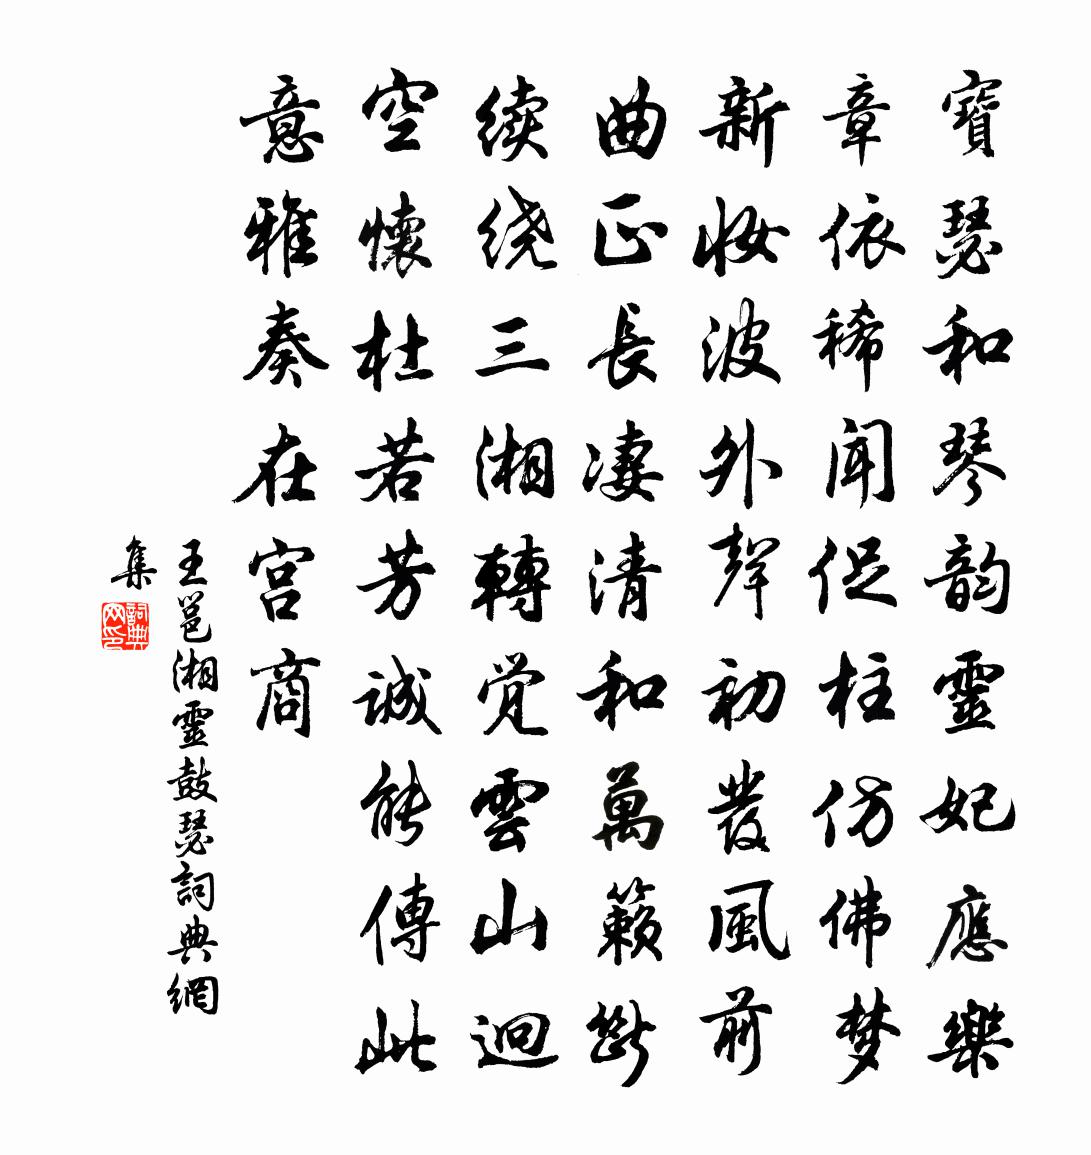 寶瑟和琴韵靈妃應樂
章依稀聞促柱仿佛梦
新妆波外聲初發風前
曲正長凄清和萬籟斷
续绕三湘轉觉雲山迥
空懷杜若芳誠能傳此
意雅奏在宫商
王邕湘靈鼓瑟詞典網
集
詞典
网印